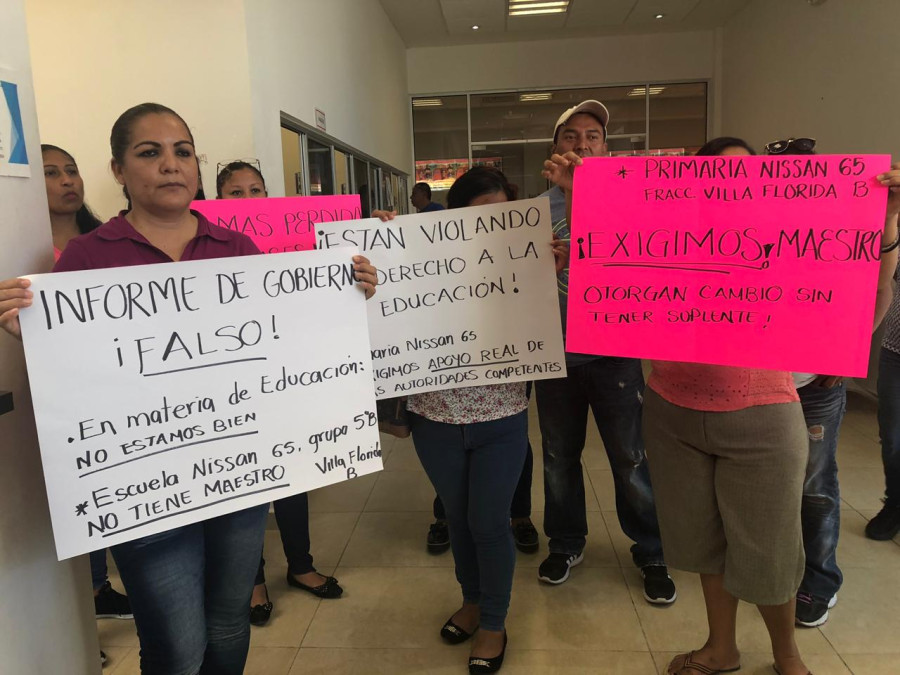 INFORME DE GOBIERNO
¡FALSO!
• En materia de Educación:
NO ESTAMOS BIEN
* Escuela Nissan 65, grupo 5°B
NO TIENE MAESTRO
Villa Florida
B
MAS PERDID
¡ESTAN VIOLANDO
DERECHO A LA
EDUCACIÓN!
maria Nissan 65
XIGIMOS APOYO REAL DE
AS AUTORIDADES COMPETENTES
* PRIMARIA NISSAN 65
FRACC. VILLA FLORIDA B
¡EXIGIMOS, MAESTRO
OTORGAN CAMBIO SIN
TENER SUPLENTE!